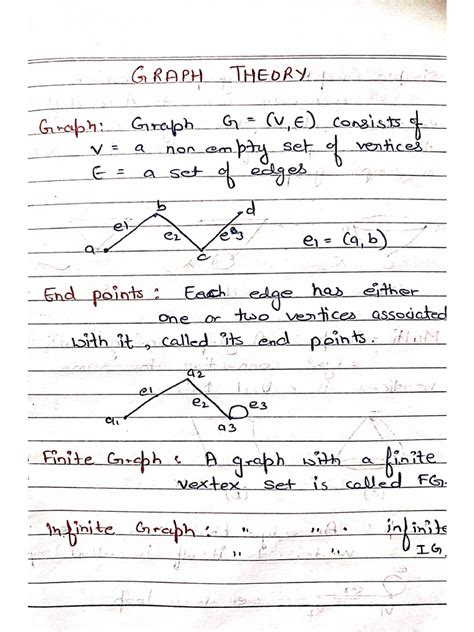 GRAPH THEORY
Graph: Graph G = (V, E) consists of
V = a non empty set of vertices
E = a set of edges
b
d
e1
e2
e3
a
c
e1 = (a, b)
End points : Each edge has either
one or two vertices associated
with it, called its end points.
a2
e1
e2
e3
a1
a3
Finite Graph : A graph with a finite
vextex set is called FG.
Infinite Graph : " " . infinite
" " IG.